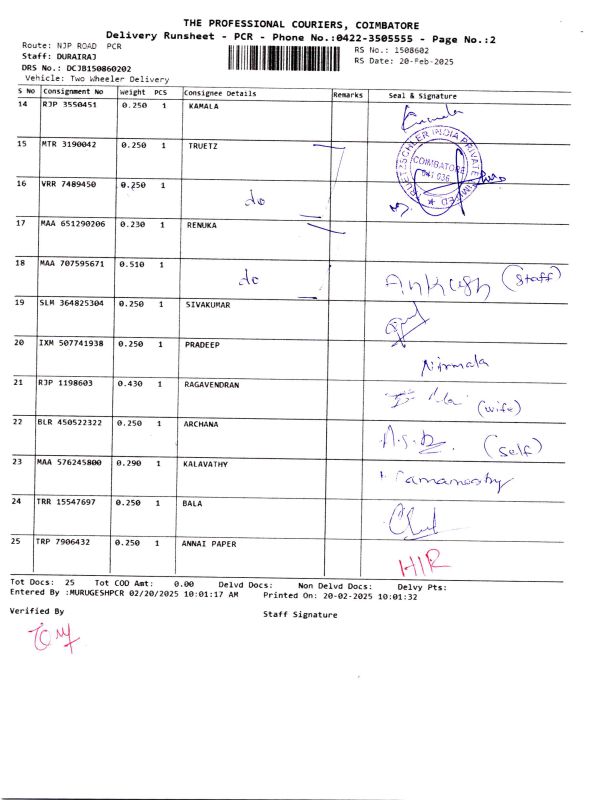 THE PROFESSIONAL COURIERS, COIMBATORE
Delivery Runsheet - PCR - Phone No.:0422-3505555 - Page No.:2
Route: NJP ROAD PCR
RS No.: 1508602
Staff: DURAIRAJ
RS Date: 20-Feb-2025
DRS No.: DCJB150860202
Vehicle: Two Wheeler Delivery
S No Consignment No Weight PCS Consignee Details Remarks Seal & Signature
14 RJP 3550451 0.250 1 KAMALA
15 MTR 3190042 0.250 1 TRUETZ
COIMBATORE
641 036
16 VRR 7489450 0.250 1 do
17 MAA 651290206 0.230 1 RENUKA
18 MAA 707595671 0.510 1 do Ankush (Staff)
19 SLM 364825304 0.250 1 SIVAKUMAR
20 IXM 507741938 0.250 1 PRADEEP Nirmala
21 RJP 1198603 0.430 1 RAGAVENDRAN (wife)
22 BLR 450522322 0.250 1 ARCHANA (Self)
23 MAA 576245800 0.290 1 KALAVATHY
24 TRR 15547697 0.250 1 BALA
25 TRP 7906432 0.250 1 ANNAI PAPER HIR
Tot Docs: 25 Tot COD Amt: 0.00 Delvd Docs: Non Delvd Docs: Delvy Pts:
Entered By :MURUGESHPCR 02/20/2025 10:01:17 AM Printed On: 20-02-2025 10:01:32
Verified By
Staff Signature